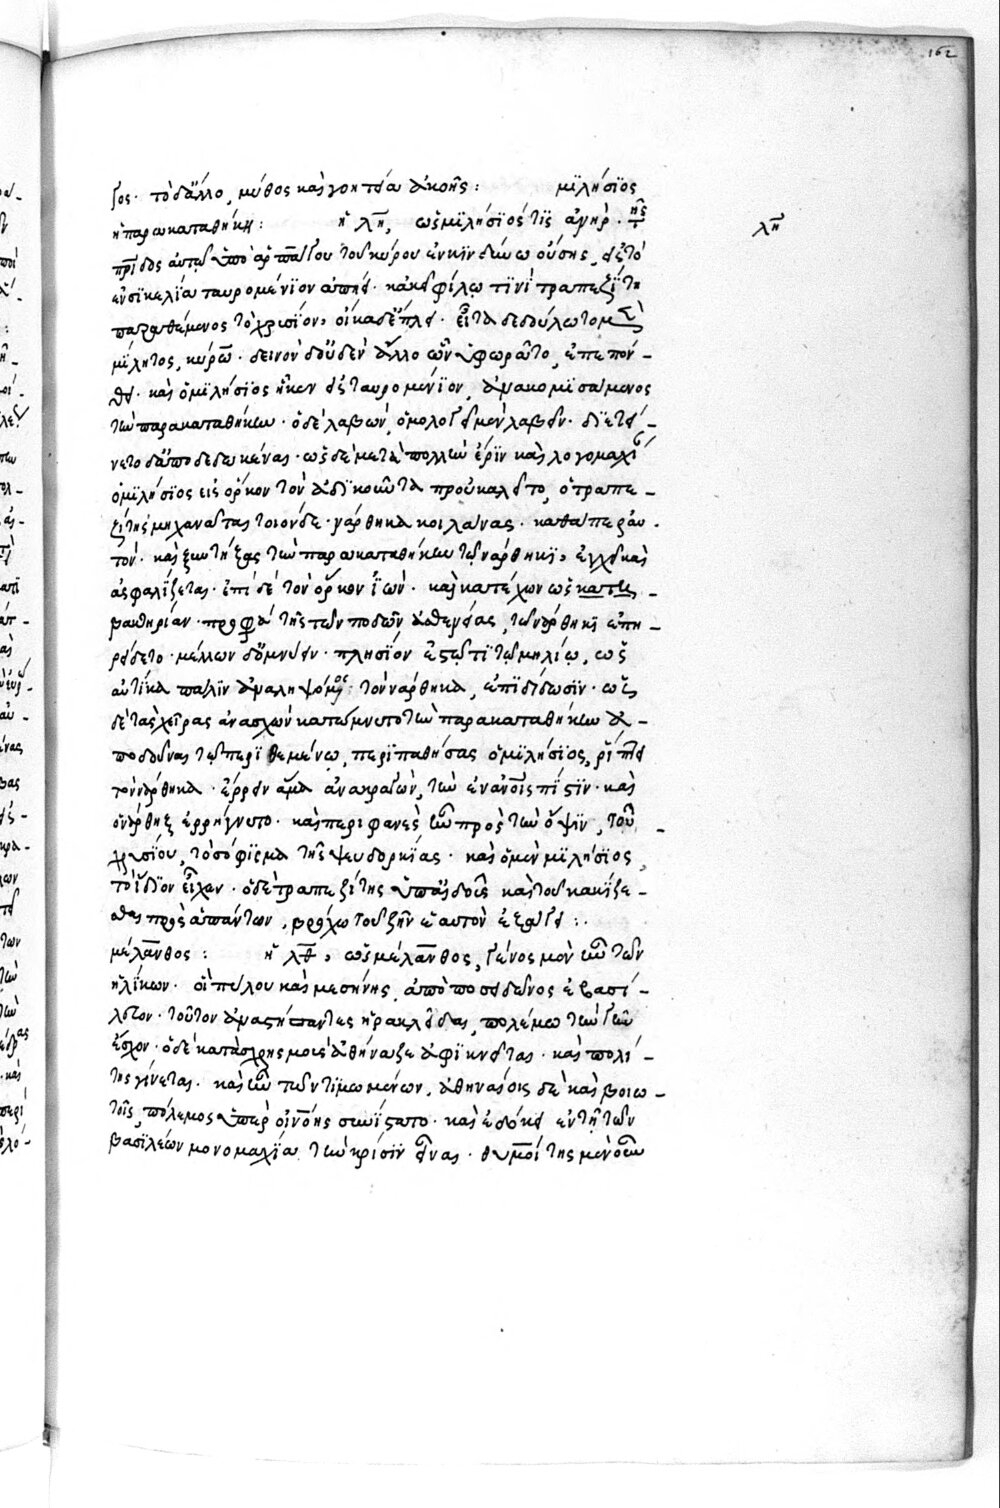 162
γος· τὸ δ' ἄλλο, μῦθος καὶ γοητεία ἀκοῆς: μϊλήσϊος
ἡ παρακαταθήκη: ἡ λη, ὡς μϊλήσϊός τις ἀνὴρ. τῆς
λη
πρίδος αὐτῷ ὑπὸ ἁρπάγου τοῦ κύρου ἐν κινδύνῳ οὔσης, εἰς τὸ
ἐν σϊκελία ταυρομένϊον ἀπῆει· κἀκεῖ φίλῳ τϊνὶ τραπεζίτη
παραθέμενος τὸ χρυσίον, οἴκαδε ἔπλει· εἶτα δεδούλωτο μὲν
μίλητος, κύρω· δεινὸν δ' οὐδὲν ἄλλο ὧν ὑφωρᾶτο, ἐπεπόν-
θει· καὶ ὁ μϊλήσϊος ἧκεν εἰς ταυρομένϊον, ἀνακομϊσόμενος
τὴν παρακαταθήκην· ὁ δὲ λαβὼν, ὁμολογεῖ μὲν λαβεῖν· διετεί-
νετο δ' ἀποδεδωκέναι· ὡς δὲ μετὰ πολλὴν ἔρϊν καὶ λογομαχί
ὁ μϊλήσϊος εἰς ὅρκον τὸν ἀδϊκοῦντα προὐκαλεῖτο, ὁ τραπε-
ζίτης μηχανᾶται τοιόνδε· νάρθηκα κοιλάνας· καθάπερ αὐ-
τόν· καὶ ξυντήξας τὴν παρακαταθήκην τῷ νάρθηκϊ, ἐγχεῖ καὶ
ἀσφαλίζεται· ἐπὶ δὲ τὸν ὅρκον ἰών· καὶ κατέχων ὡς
βακτηρίαν· προφάσει τῆς τῶν ποδῶν ἀσθενείας, τῷ νάρθηκϊ ἐπη-
ρείδετο· μέλλων δ' ὀμνύειν· πλησίον ἑστῶτϊ τῷ μϊλησίῳ, ὡς
αὐτίκα πάλϊν ἀναληψόμενος τὸν νάρθηκα, ἐπϊδίδωσϊν· ὡς
δὲ τὰς χεῖρας ἀνασχὼν κατώμνυτο τὴν παρακαταθήκην ἀ-
ποδοῦναι τῷ περϊθεμένῳ, περιπαθήσας ὁ μϊλήσϊος, ῥίπτει
τὸν νάρθηκα· ἔρρειν ἅμα ἀνακραγὼν, τὴν ἐν ἀνοις πίστϊν· καὶ
ὁ νάρθηξ ἐρρήγνυτο· καὶ περιφανὲς ἦν πρὸς τὴν ὄψϊν, τοῦ
χρυσίου, τὸ σόφϊσμα τῆς ψευδορκίας· καὶ ὁ μὲν μϊλήσϊος,
τὸ ἴδϊον εἶχεν· ὁ δὲ τραπεζίτης ὑπ' αἰδοῦς καὶ τοῦ κακίζε-
σθαι πρὸς ἁπάντων, βρόχω τοῦ ζῆν ἑαυτὸν ἐξάγει:
μέλανθος: ἡ λθ, ὡς μέλανθος, γένος μὲν ἦν τῶν
νηλίκων· οἳ πύλου καὶ μεσήνης, ἀπὸ ποσειδῶνος ἐβασί-
λευον· τοῦτον ἀναστήσαντες ἡρακλεῖδαι, πολέμω τὴν γῆν
ἔσχον· ὁ δὲ κατὰ χρησμοὺς ἀθήναζε ἀφϊκνεῖται· καὶ πολί-
της γίνεται· καὶ ἦν τῶν τϊμωμένων, ἀθηναίοις δὲ καὶ βοιω-
τοῖς, πόλεμος ὑπὲρ οἰνόης συνίστατο· καὶ ἐδόκει ἐν τῆ τῶν
βασϊλέων μονομαχία τὴν κρίσϊν εἶναι· θυμοίτης μὲν οὖν